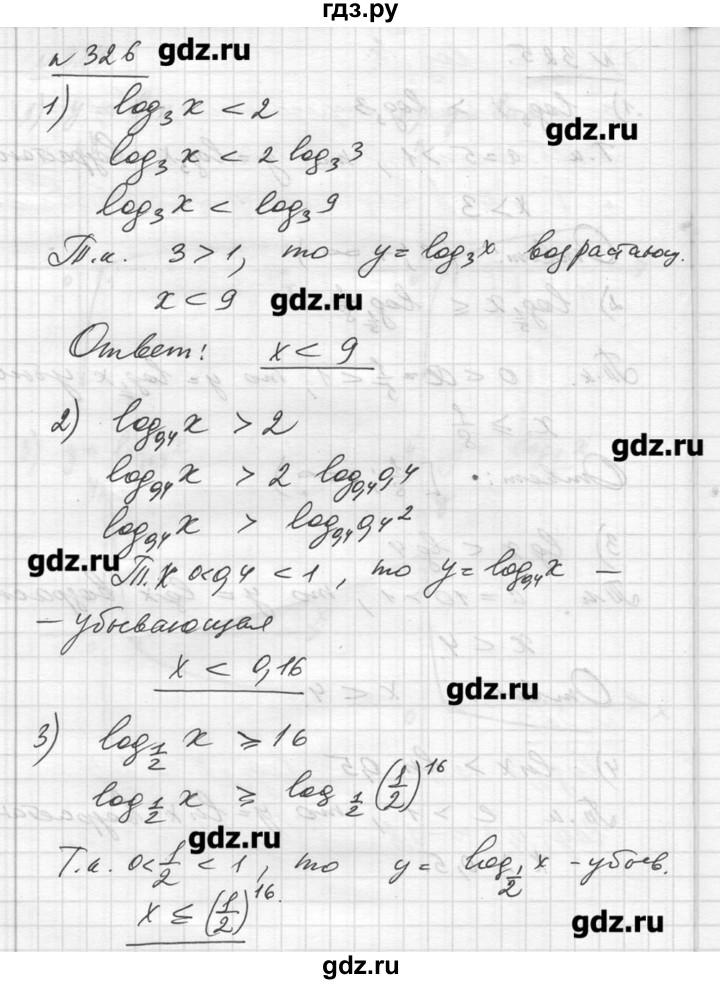 гдз.ру
n 326 gdz.ru
1) log₃ x < 2
gdz.ru
log₃ x < 2 log₃ 3
log₃ x < log₃ 9
Т.к. 3 > 1, то y = log₃ x возрастающ.
x < 9 gdz.ru
Ответ: x < 9
2) log₀,₄ x > 2
gdz.ru
log₀,₄ x > 2 log₀,₄ 0,4
log₀,₄ x > log₀,₄ 0,4²
gdz.ru
Т.к 0<0,4 < 1, то y = log₀,₄ x –
– убывающая
x < 0,16
gdz.ru
3) log_{1/2} x ⩾ 16
log_{1/2} x ⩾ log_{1/2} (1/2)^16
gdz.ru
Т.к. 0<1/2 < 1, то y = log_{1/2} x - убыв.
x ≤ (1/2)^16.
gdz.ru
gdz.ru